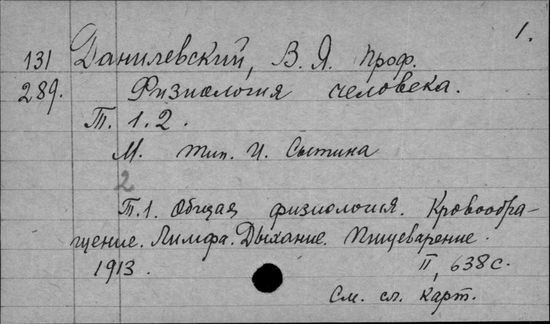 1.
131 Данилевский, В. Я. проф.
289. Физиология человека.
Т. 1. 2.
М. тип. И. Сытина
2
Т.1. Общая физиология. Кровообра-
щение. Лимфа. Дыхание. Пищеварение.
1913. II, 638 с.
См. сл. карт.